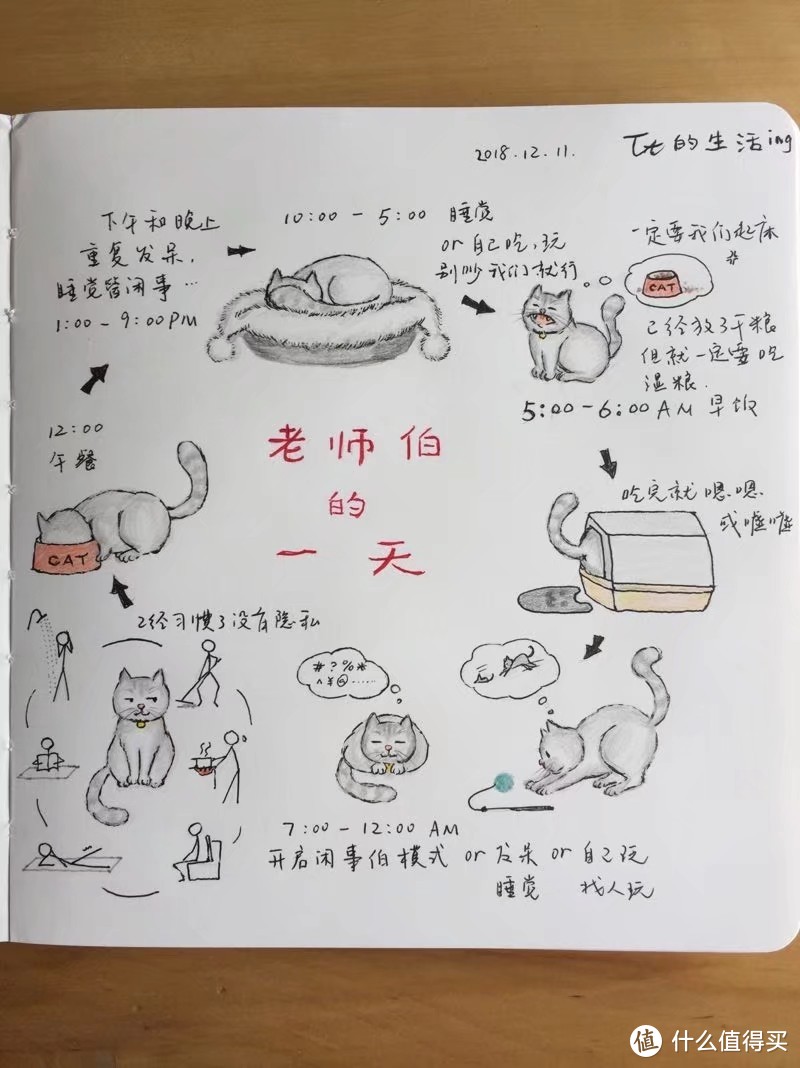 2018.12.11.
Tt的生活ing
下午和晚上
重复发呆,
睡觉管闲事…
1:00-9:00PM
10:00-5:00 睡觉
or自己吃,玩
别吵我们就行
一定要我们起床
CAT
已经放了干粮
但就一定要吃
湿粮.
5:00-6:00AM 早饭
吃完就嗯嗯
或嘘嘘
老师伯
的
一天
12:00
午餐
CAT
已经习惯了没有隐私
#?%*
^¥@……
7:00-12:00 AM
开启闲事伯模式 or 发呆 or 自己玩
睡觉 找人玩
值 什么值得买